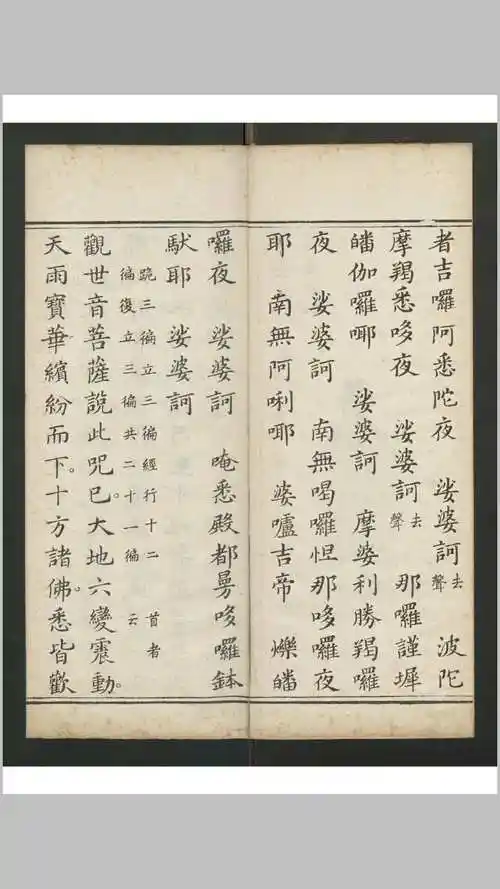 者吉囉阿悉陀夜　娑婆訶去聲　波陀
摩羯悉哆夜　娑婆訶去聲　那囉謹墀
皤伽囉㖿　娑婆訶　摩婆利勝羯囉
夜　娑婆訶　南無喝囉怛那哆囉夜
耶　南無阿唎㖿　婆嚧吉帝　爍皤
囉夜　娑婆訶　唵悉殿都曼哆囉鉢
馱耶　娑婆訶
跪三徧立三徧經行十二　首者
徧復立三徧共二十一徧　云
觀世音菩薩說此咒已。大地六變震動。
天雨寶華繽紛而下。十方諸佛。悉皆歡